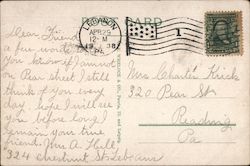 POST CARD
LEBANON
APR 25
12-M
1908
PA.
1
Dear Friend
a few words
You know if I cannot
on Pear street I still
think of you every
day, hope I will see
you before long I
remain your true
friend. Mrs A. Hall
324 chestnut St Lebanon
Mrs Charles Krick
320 Pear St
Reading
Pa